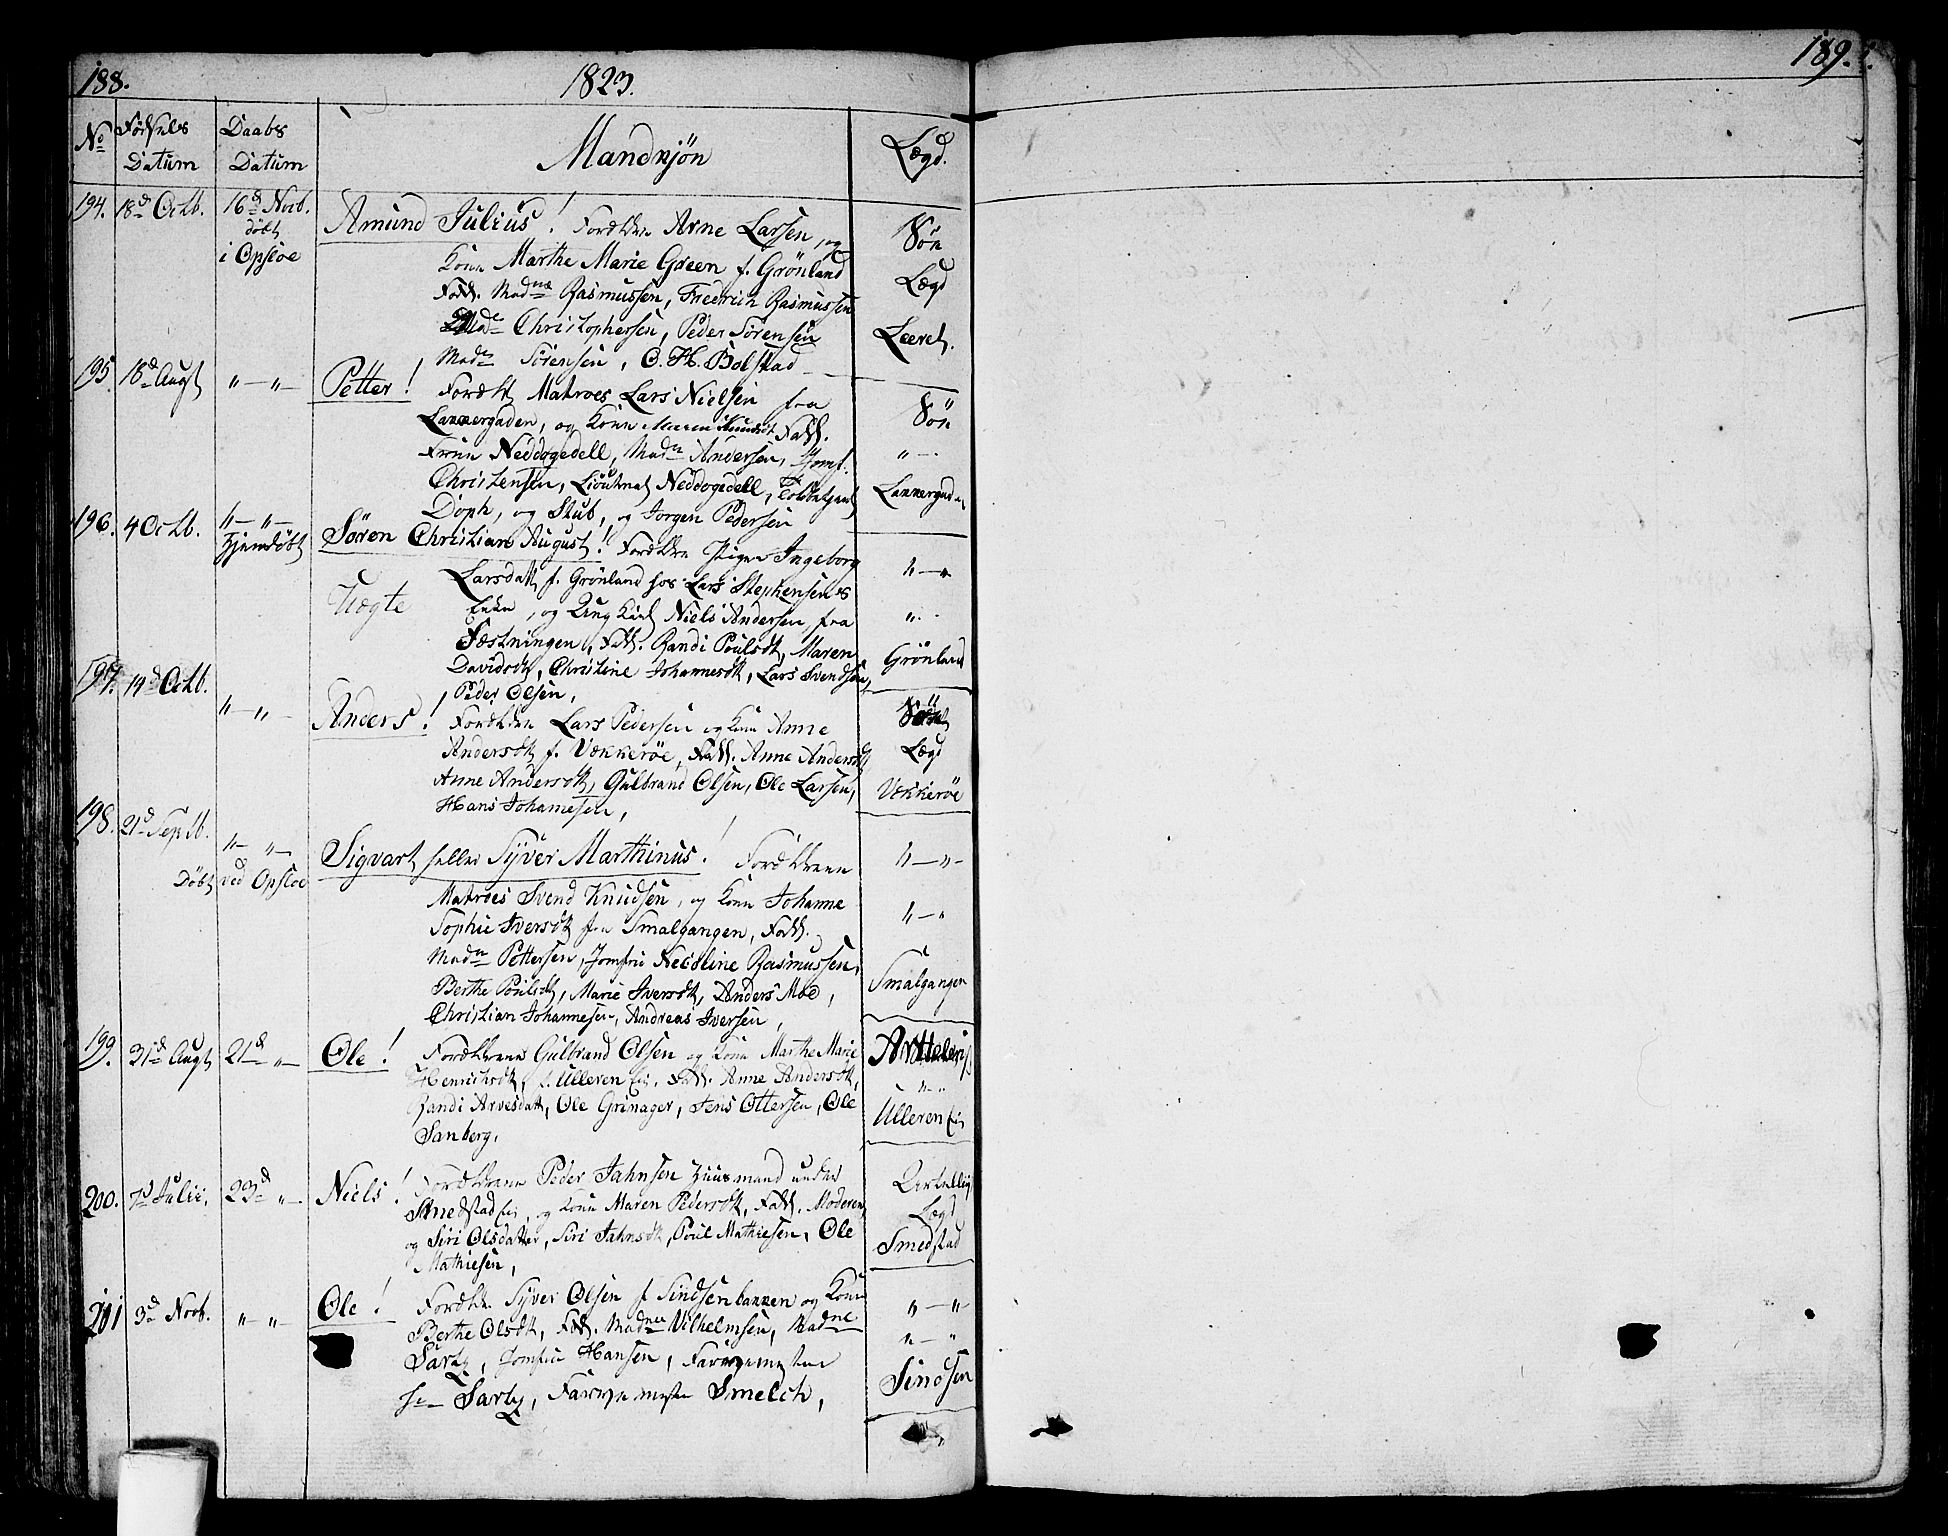 188.
1823.
189.
No
Fødsels Datum
Daabs Datum
Mandkjön
Lægd.
194. 18d Octb. 16d Novb. döbt i Opsloe
Amund Julius! Forældre Arne Larsen, og
Kone Marthe Marie Green f. Grönland
Fadd. Madme Rasmussen, Fredrich Rasmussen
Christophersen, Peder Sörensen
Madme Sörensen, C. H. Bolstad
Sön
Lægd
Leeret.
195. 18d Augt "—"—
Petter! Foræld. Matroes Lars Nielsen fra
Lakkergaden, og Kone Maren Fadd.
Frue Neddegedell, Madme Andersen, Jomf.
Christensen, Lieutnat Neddegedell,
Doph, og Stub, og Jörgen Pedersen
Sön
"—
Lakkergaden
196. 4 Octb. "—"— Hjemdöbt
Sören Christian August! Forældre Pigen Ingeborg
Uægte
Larsdatt f. Grönland hos Lars Stephensens
Enke, og Ung Karl Niels Andersen, fra
Fæstningen, Fadd. Randi Poulsdt, Maren
Davidsdt, Christine Johannesdt, Lars Svendsen,
Peder Olsen,
"—"
"—
Grönland
197. 19d Octb. "—"—
Anders! Forældre Lars Pedersen og Kone Anne
Andersdt f. Vækkeröe, Fadd. Anne Andersdt
Anne Andersdt, Gulbrand Olsen, Ole Larsen,
Hans Johannesen,
Lægd
Vækkeröe
198. 21d Septb. "—"— Döbt ved Opsloe
Sigvart heller Syver Marthinus! Forældrene
Matroes Svend Knudsen, og Kone Johanne
Sophie Iversdt fra Smalgangen, Fadd.
Madme Pettersen, Jomfrue Nicoline Rasmussen,
Berthe Poulsdt, Marie Iversdt, Anders Moe,
Christian Johannesen, Andreas Iversen,
"—"—
"—"
Smalgangen
199. 31d Augt 21d "—
Ole! Forældrene Gulbrand Olsen og Kone Marthe Marie
Henrichsdt, f. Ulleren Ei. Fadd. Anne Andersdt,
Randi Arvesdatt, Ole Grinager, Jens Ottersen, Ole
Sanberg.
"—"
Ulleren Ei
200. 7d Julii, 23d "—
Niels! Forældrene Peder Jahnsen Huusmand under
Smedstad Ei, og Kone Maren Pedersdt, Fadd. Moderen,
og Siri Olsdatter, Siri Jahnsdt, Poul Mathiesen, Ole
Mathiesen,
Lægd
Smedstad
201 3d Novb. "—"—
Ole! Forældre Syver Olsen f Sindsenbakken og Kone
Berthe Olsdt, Fadd. Madme Vilhelmsen, Madme
Sarby, Jomfrue Hansen,
Sarby, Smelch,
"—"—
"—"
Sindsen